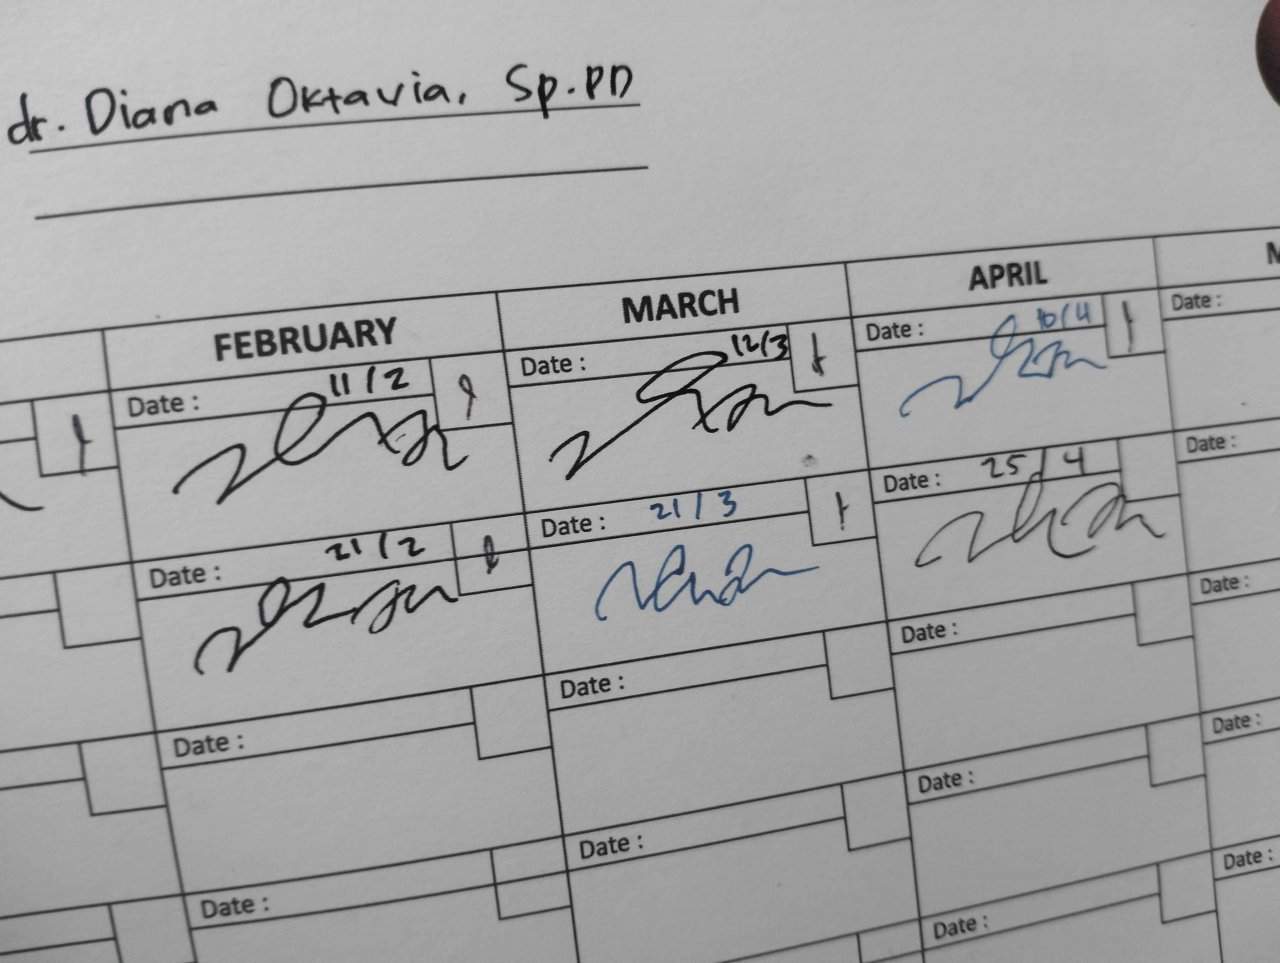 dr. Diana Oktavia, Sp.PD
FEBRUARY MARCH APRIL
Date : 11/2
Date : 12/3
Date : 10/4
Date :
Date : 21/2
Date : 21/3
Date : 25/4
Date :
Date :
Date :
Date :
Date :
Date :
Date :
Date :
Date :
Date :
Date :